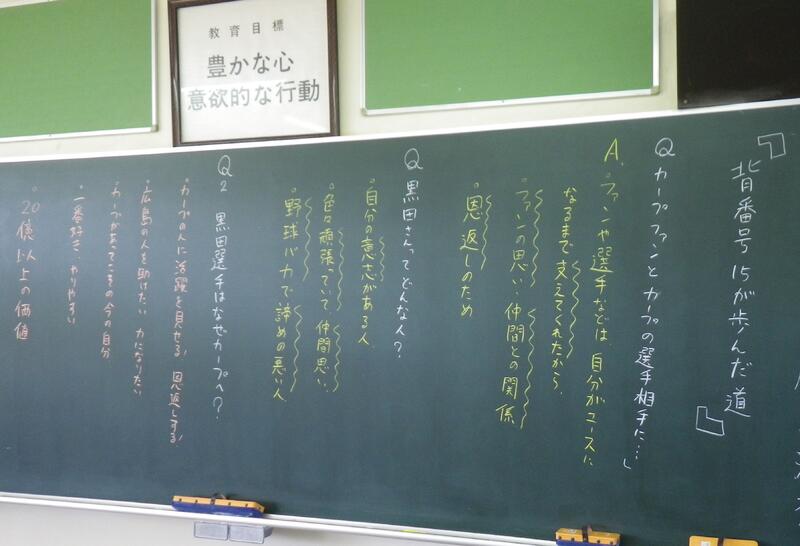 教育目標
豊かな心
意欲的な行動
『背番号15が歩んだ道』
Q カープファンとカープの選手相手に…」
A. ・ファンや選手などは、自分がエースに
なるまで支えてくれたから。
・ファンの思い、仲間との関係
・恩返しのため
Q 黒田さんってどんな人?
・自分の意志がある人。
・色々頑張っていて、仲間思い。
・野球バカで諦めの悪い人。
Q2 黒田選手はなぜカープへ?
・カープの人に活躍を見せる!恩返しする!
・広島の人を助けたい 力になりたい
・カープがあってこその今の自分
・一番好き、やりやすい
・20億以上の価値